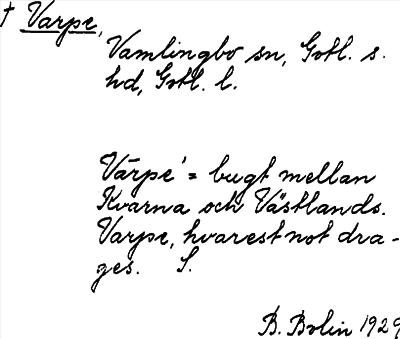 † Varpe,
Vamlingbo sn, Gotl. s.
hd, Gotl. l.
Värpe' = bugt mellan
Kvarna och Västlands.
Varpe, hvarest not dra-
ges. S.
B. Bolin 1929